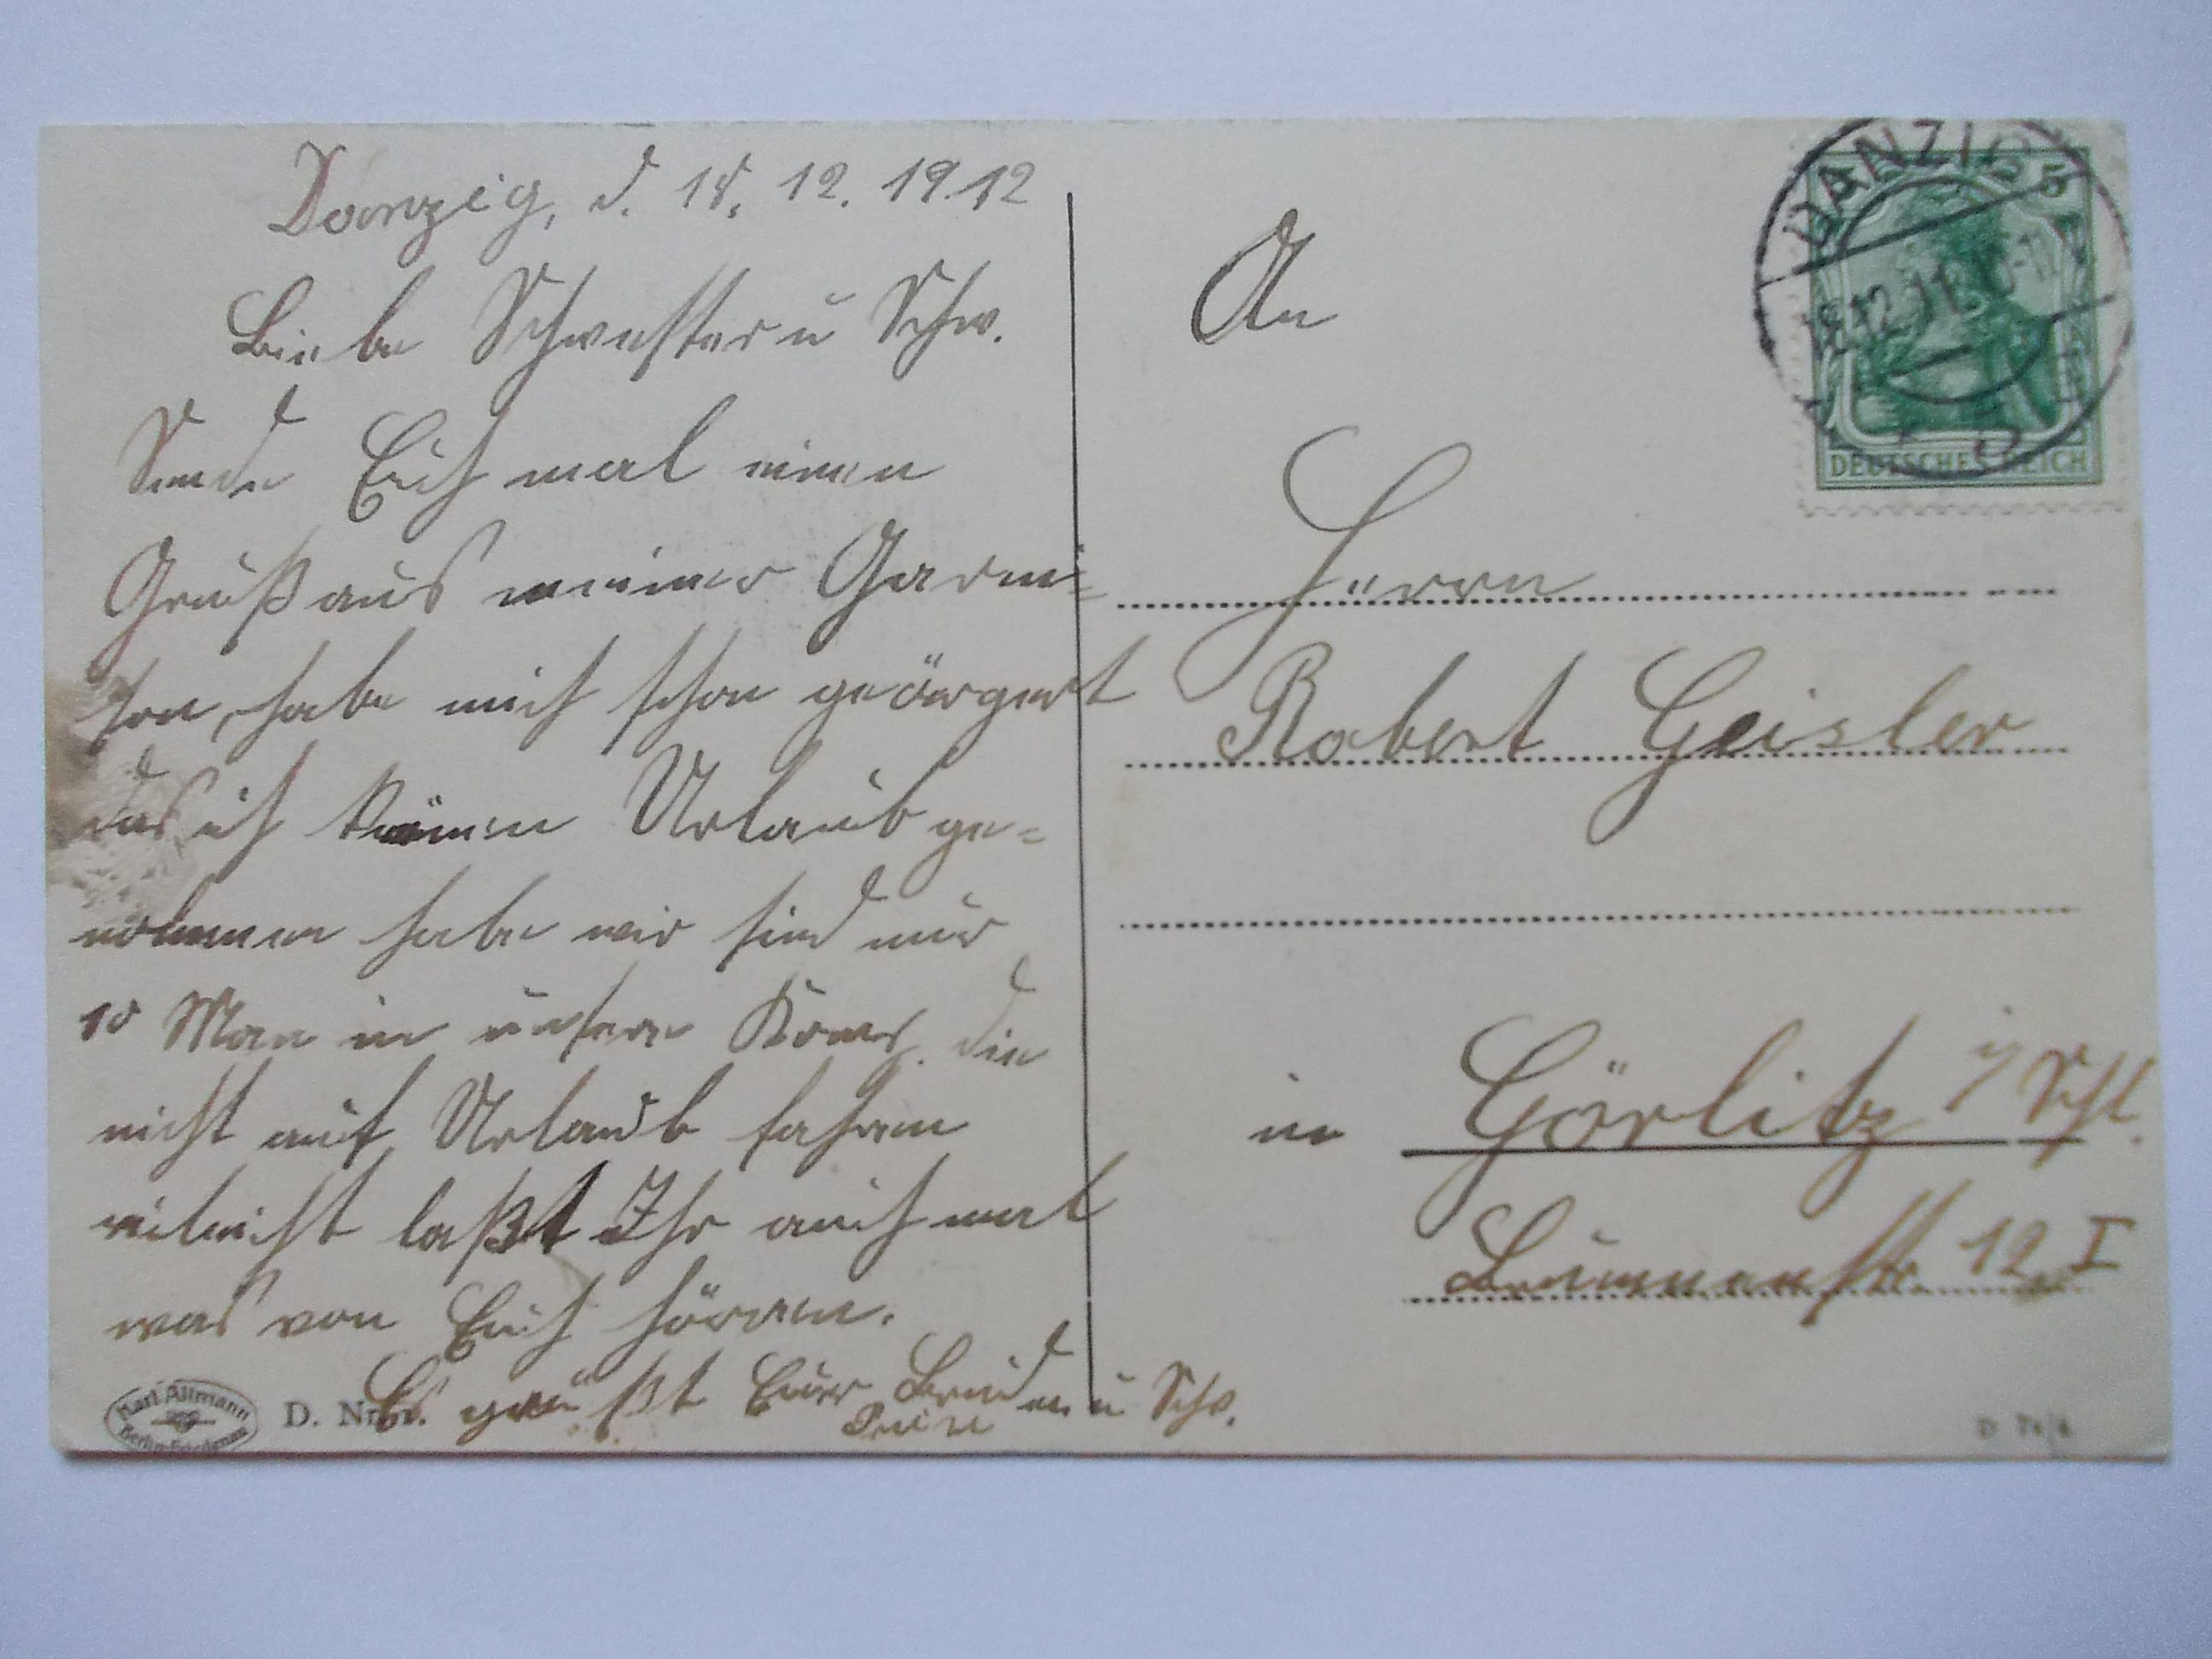 Danzig, d. 18. 12. 1912
Liebe Schwester u Schw.
Sende Euch mal einen
Gruß aus meiner Garni=
son, habe mich schon geärgert
das ich keinen Urlaub ge=
nommen habe wir sind nur
10 Man in unsere Komp. die
nicht auf Urlaub fahren
vileicht laßt Ihr auch mal
was von Euch hören.
Es grüßt Euer Bruder u Schw.
Karl Altmann
D. Nr.
An
Herrn
Robert Geisler
in Görlitz i/ Schl.
Brunnenstr. 12 I
DANZIG 5
DEUTSCHES REICH